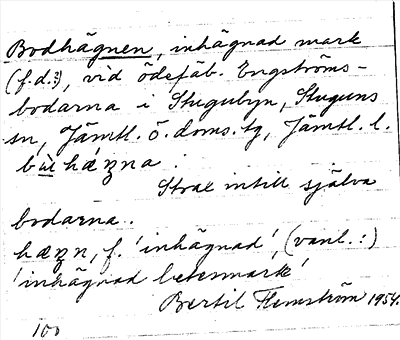 Bodhägnen, inhägnad mark
(f.d.?), vid ödefäb. Engströms-
bodarna i Stugubyn, Stuguns
sn, Jämtl. ö. doms. tg, Jämtl. l.
hæŋna :
Strax intill själva
bodarna..
hæŋn, f. 'inhägnad', (vanl.:)
'inhägnad betesmark'
Bertil Flemström 1954.
100